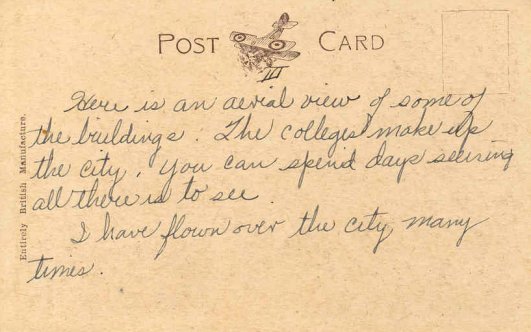 POST CARD
III
Here is an aerial view of some of
the buildings. The colleges make up
the city. You can spend days seeing
all there is to see.
I have flown over the city many
times.
Entirely British Manufacture.